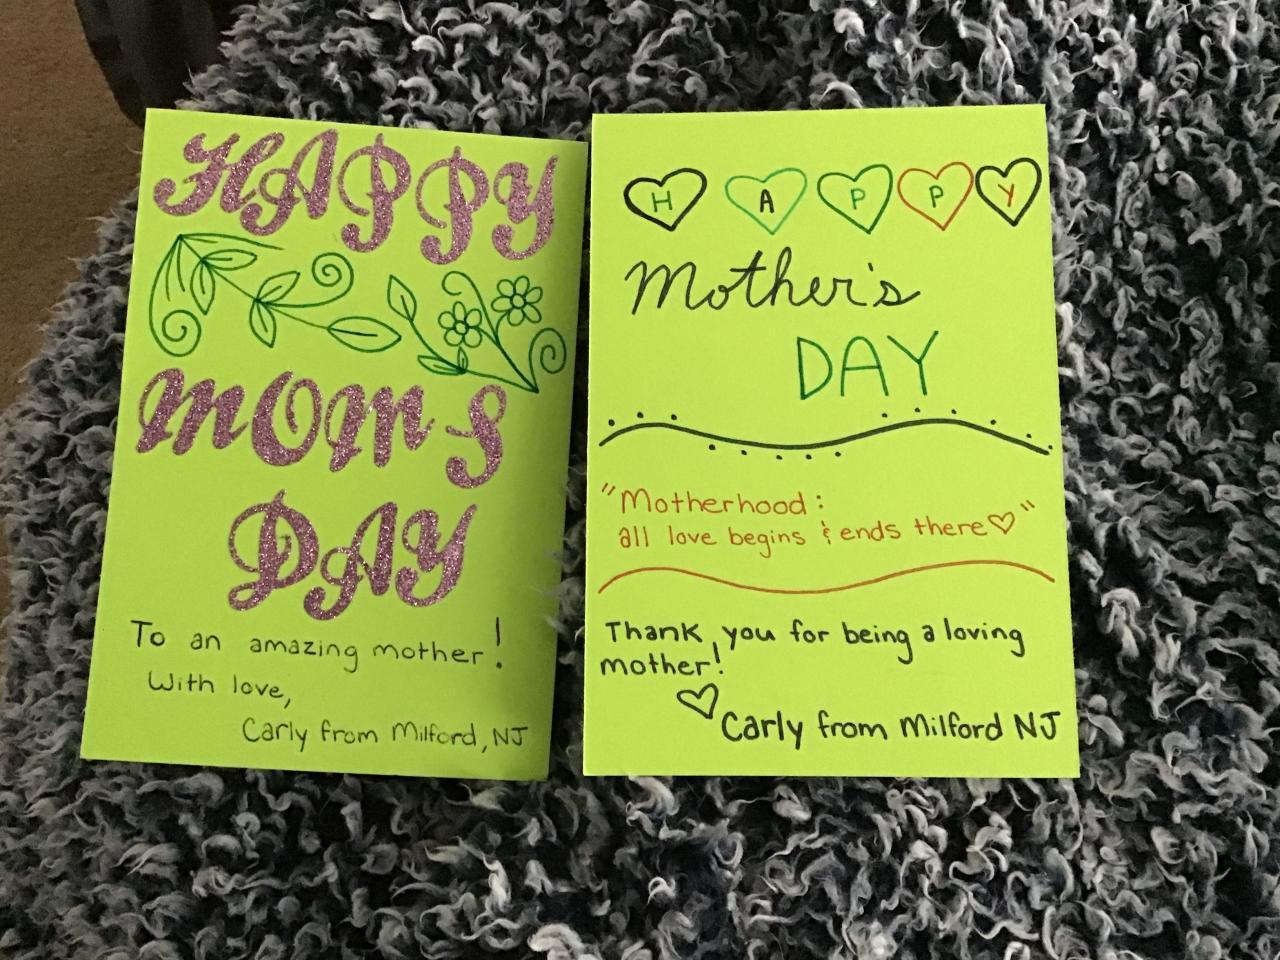 HAPPY
MOMS
DAY
To an amazing mother!
With love,
Carly from Milford, NJ
HAPPY
Mother's
DAY
"Motherhood:
all love begins & ends there♡"
Thank you for being a loving
mother!
♡ Carly from Milford NJ